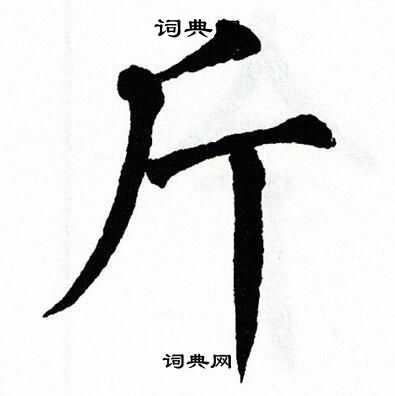 词典
斤
词典网